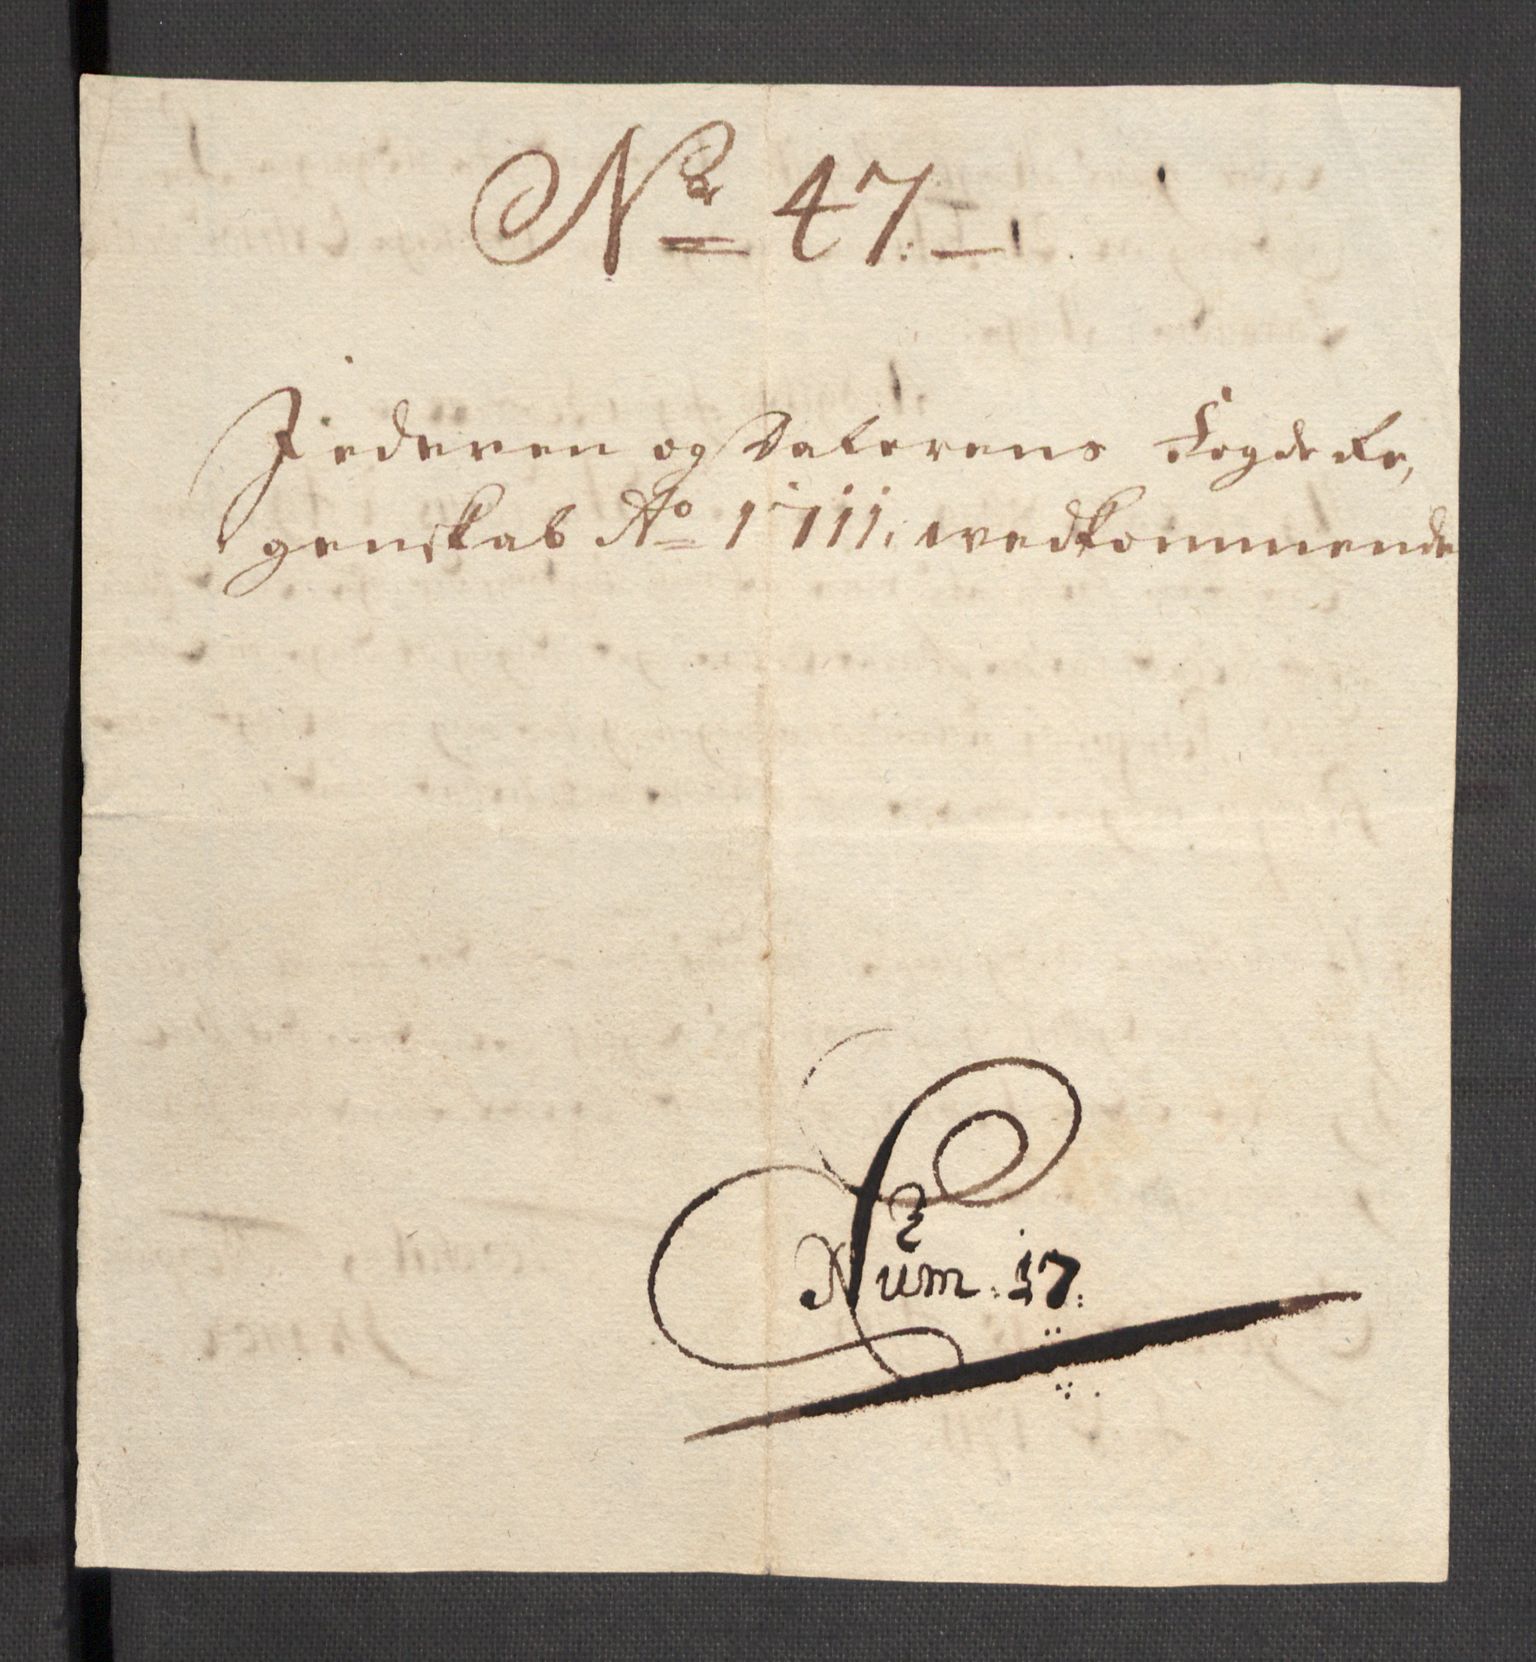 No 47.
Jederen og Dalerens Fogde Re,
genskab Ao 1711, wedkommende
Num. 17.